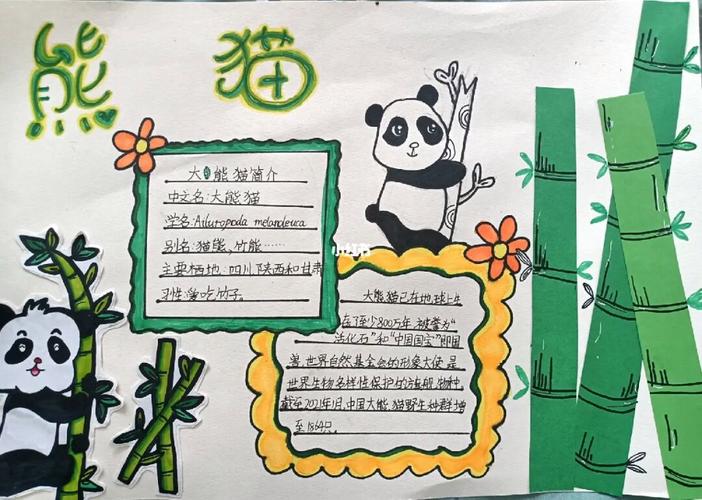 熊 猫
大熊猫简介
中文名:大熊猫
学名:Ailuropoda melanoleuca
别名:猫熊、竹熊……
主要栖地:四川、陕西和甘肃
习性:爱吃竹子。
小红书
大熊猫已在地球上生
存了至少800万年,被誉为“
活化石”和“中国国宝”即国
兽,世界自然基金会的形象大使,是
世界生物多样性保护的旗舰物种,
截至2021年1月,中国大熊猫野生种群增
至1864只。